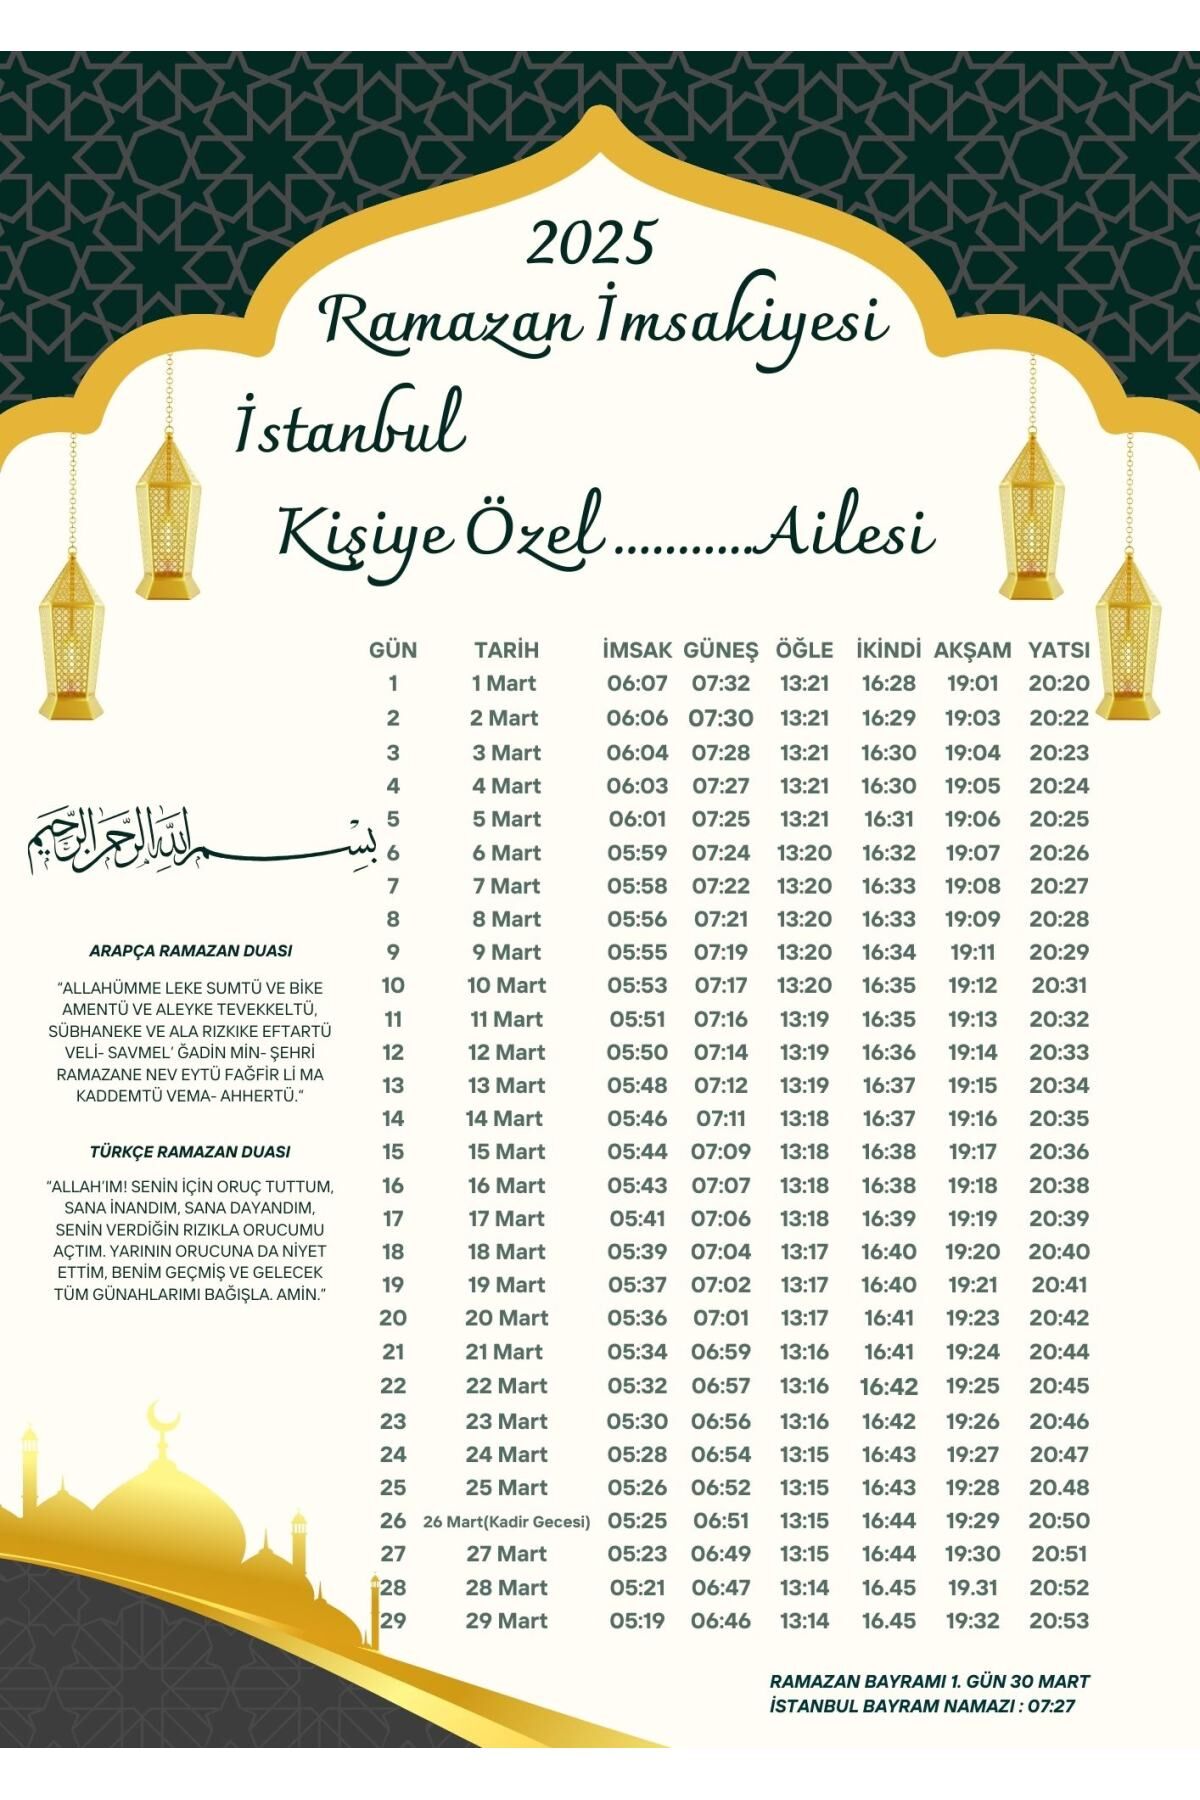 2025
Ramazan İmsakiyesi
İstanbul
Kişiye Özel ...........Ailesi
GÜN TARİH İMSAK GÜNEŞ ÖĞLE İKİNDİ AKŞAM YATSI
1 1 Mart 06:07 07:32 13:21 16:28 19:01 20:20
2 2 Mart 06:06 07:30 13:21 16:29 19:03 20:22
3 3 Mart 06:04 07:28 13:21 16:30 19:04 20:23
4 4 Mart 06:03 07:27 13:21 16:30 19:05 20:24
5 5 Mart 06:01 07:25 13:21 16:31 19:06 20:25
6 6 Mart 05:59 07:24 13:20 16:32 19:07 20:26
7 7 Mart 05:58 07:22 13:20 16:33 19:08 20:27
8 8 Mart 05:56 07:21 13:20 16:33 19:09 20:28
9 9 Mart 05:55 07:19 13:20 16:34 19:11 20:29
10 10 Mart 05:53 07:17 13:20 16:35 19:12 20:31
11 11 Mart 05:51 07:16 13:19 16:35 19:13 20:32
12 12 Mart 05:50 07:14 13:19 16:36 19:14 20:33
13 13 Mart 05:48 07:12 13:19 16:37 19:15 20:34
14 14 Mart 05:46 07:11 13:18 16:37 19:16 20:35
15 15 Mart 05:44 07:09 13:18 16:38 19:17 20:36
16 16 Mart 05:43 07:07 13:18 16:38 19:18 20:38
17 17 Mart 05:41 07:06 13:18 16:39 19:19 20:39
18 18 Mart 05:39 07:04 13:17 16:40 19:20 20:40
19 19 Mart 05:37 07:02 13:17 16:40 19:21 20:41
20 20 Mart 05:36 07:01 13:17 16:41 19:23 20:42
21 21 Mart 05:34 06:59 13:16 16:41 19:24 20:44
22 22 Mart 05:32 06:57 13:16 16:42 19:25 20:45
23 23 Mart 05:30 06:56 13:16 16:42 19:26 20:46
24 24 Mart 05:28 06:54 13:15 16:43 19:27 20:47
25 25 Mart 05:26 06:52 13:15 16:43 19:28 20.48
26 26 Mart(Kadir Gecesi) 05:25 06:51 13:15 16:44 19:29 20:50
27 27 Mart 05:23 06:49 13:15 16:44 19:30 20:51
28 28 Mart 05:21 06:47 13:14 16.45 19.31 20:52
29 29 Mart 05:19 06:46 13:14 16.45 19:32 20:53
بِسْمِ اللهِ الرَّحْمٰنِ الرَّحِيْمِ
ARAPÇA RAMAZAN DUASI
“ALLAHÜMME LEKE SUMTÜ VE BİKE
AMENTÜ VE ALEYKE TEVEKKELTÜ,
SÜBHANEKE VE ALA RIZKIKE EFTARTÜ
VELİ- SAVMEL’ ĞADİN MİN- ŞEHRİ
RAMAZANE NEV EYTÜ FAĞFİR Lİ MA
KADDEMTÜ VEMA- AHHERTÜ.“
TÜRKÇE RAMAZAN DUASI
“ALLAH’IM! SENİN İÇİN ORUÇ TUTTUM,
SANA İNANDIM, SANA DAYANDIM,
SENİN VERDİĞİN RIZIKLA ORUCUMU
AÇTIM. YARININ ORUCUNA DA NİYET
ETTİM, BENİM GEÇMİŞ VE GELECEK
TÜM GÜNAHLARIMI BAĞIŞLA. AMİN.”
RAMAZAN BAYRAMI 1. GÜN 30 MART
İSTANBUL BAYRAM NAMAZI : 07:27